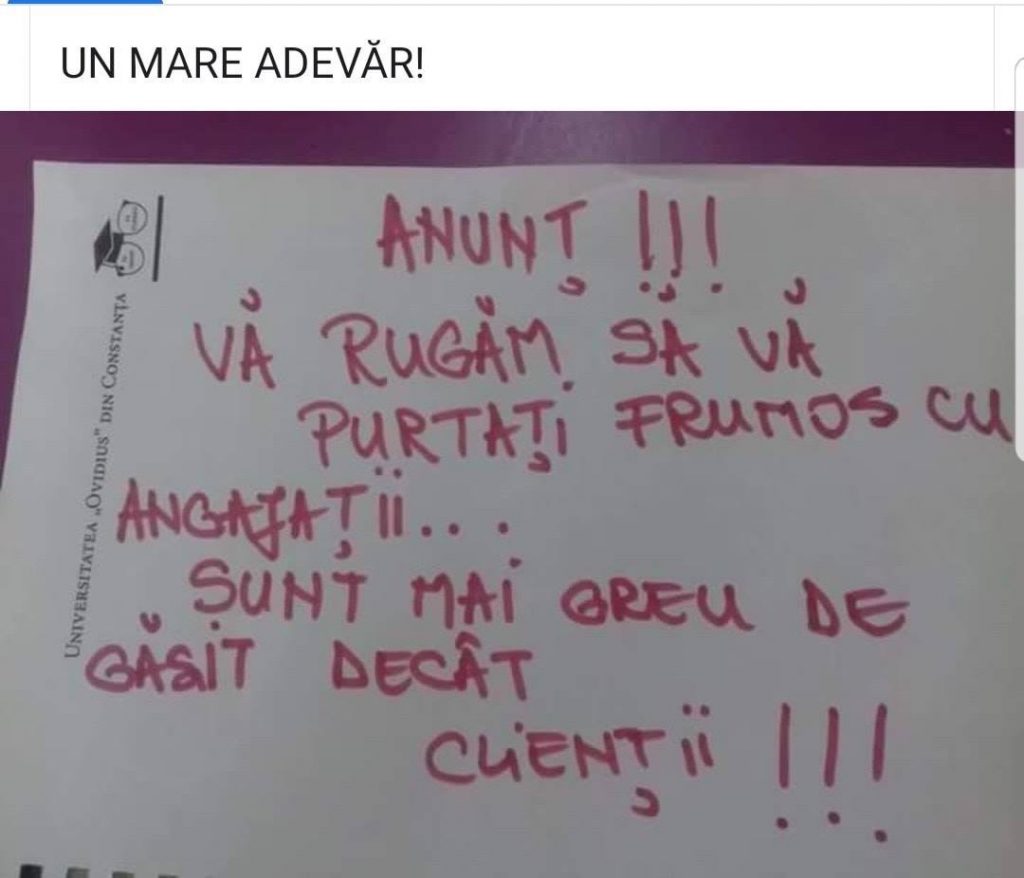 UN MARE ADEVĂR!
ANUNȚ !!!
VĂ RUGĂM SĂ VĂ
PURTAȚI FRUMOS CU
ANGAJAȚII...
ȘUNT MAI GREU DE
GĂSIT DECÂT
CLIENȚII !!!
UNIVERSITATEA „OVIDIUS” DIN CONSTANȚA